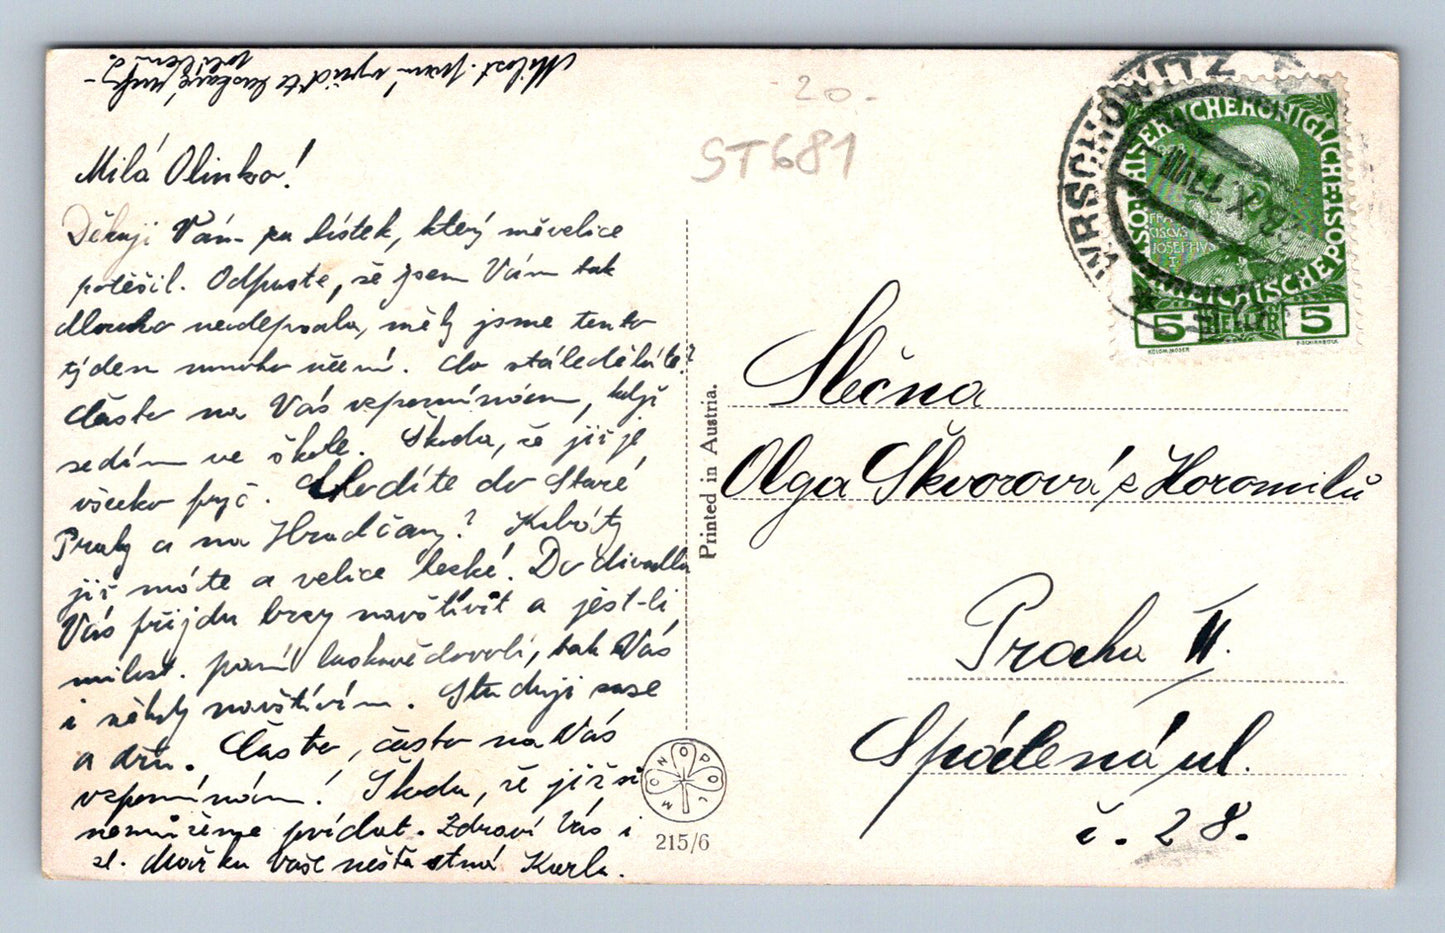 Milost. paní vyřiďte laskavě ruky-
políbení.
- 20.-
ST681
Milá Olinko!
Děkuji Vám za lístek, který mě velice
potěšil. Odpusťte, že jsem Vám tak
dlouho neodepsala, měly jsme tento
týden mnoho učení. Co stále děláte?
Často na Vás vzpomínám, když
sedím ve škole. Škoda, že již je
všecko pryč. Chodíte do Staré
Prahy a na Hradčany? Kabáty
již máte a velice hezké. Do divadla
Vás přijdu brzy navštívit a jest-li
milost. paní laskavě dovolí, tak Vás
i někdy navštívím. Studuji zase
a dřu. Často, často na Vás
vzpomínám! Škoda, že již si
nemůžeme povídat. Zdraví Vás i
sl. Mařku Vaše nešťastná Karla.
Printed in Austria.
MONOPOL
215/6
WRSCHOWITZ
KAISERLICHEKÖNIGLICHE ÖSTERREICHISCHE POST
FRAN
CISCUS
IOSEPHUS
I
5 HELLER 5
KOLOM. MOSER
F. SCHIRNBÖCK
Slečna
Olga Škvorová z Horomilů
Praha II.
Spálená ul.
č. 28.